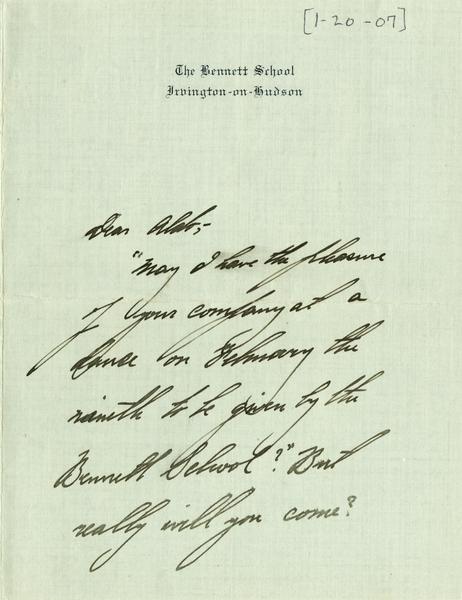 [1-20-07]
The Bennett School
Irvington-on-Hudson
Dear
"May I have the pleasure
of your company at a
dance on February the
nineth to be given by the
Bennett School?" But
really will you come?